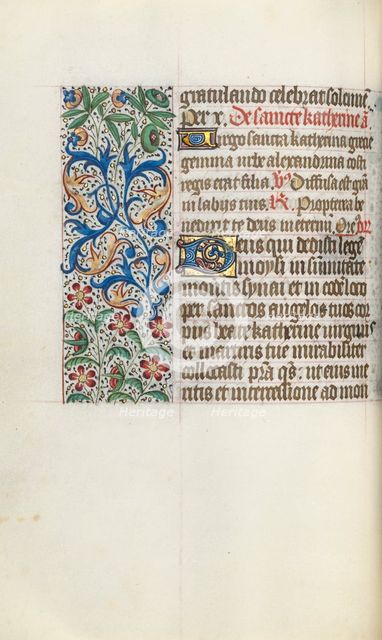 gratulando celebrat solenne
per x. De sancte katherine ā
Virgo sancta katherina grecie
gemma urbe alexandrina costi
regis erat filia. V͛s Diffusa est grā
in labijs tuis. R͛ Propterea be
nedixit te deus in eternū. Oremꝰ or̄
Deus qui dedisti legē
moysi in sūmitate
montis synai et in eodē loco
per sanctos angelos tuos cor
pus beate katherine virginis
et martiris tue mirabiliter
collocasti pr̄a qs̄: ut eius me
ritis et intercessione ad mon
Heritage Heritage
Heritage Heritage